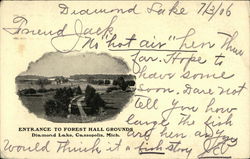 Diamond Lake 7/3/06
Friend Jack.
No "hot air" here thus
far. Hope to
have some
soon. Dare not
tell you how
large the fish
are here as you
would think it a fish story
ENTRANCE TO FOREST HALL GROUNDS
Diamond Lake, Cassopolis, Mich.